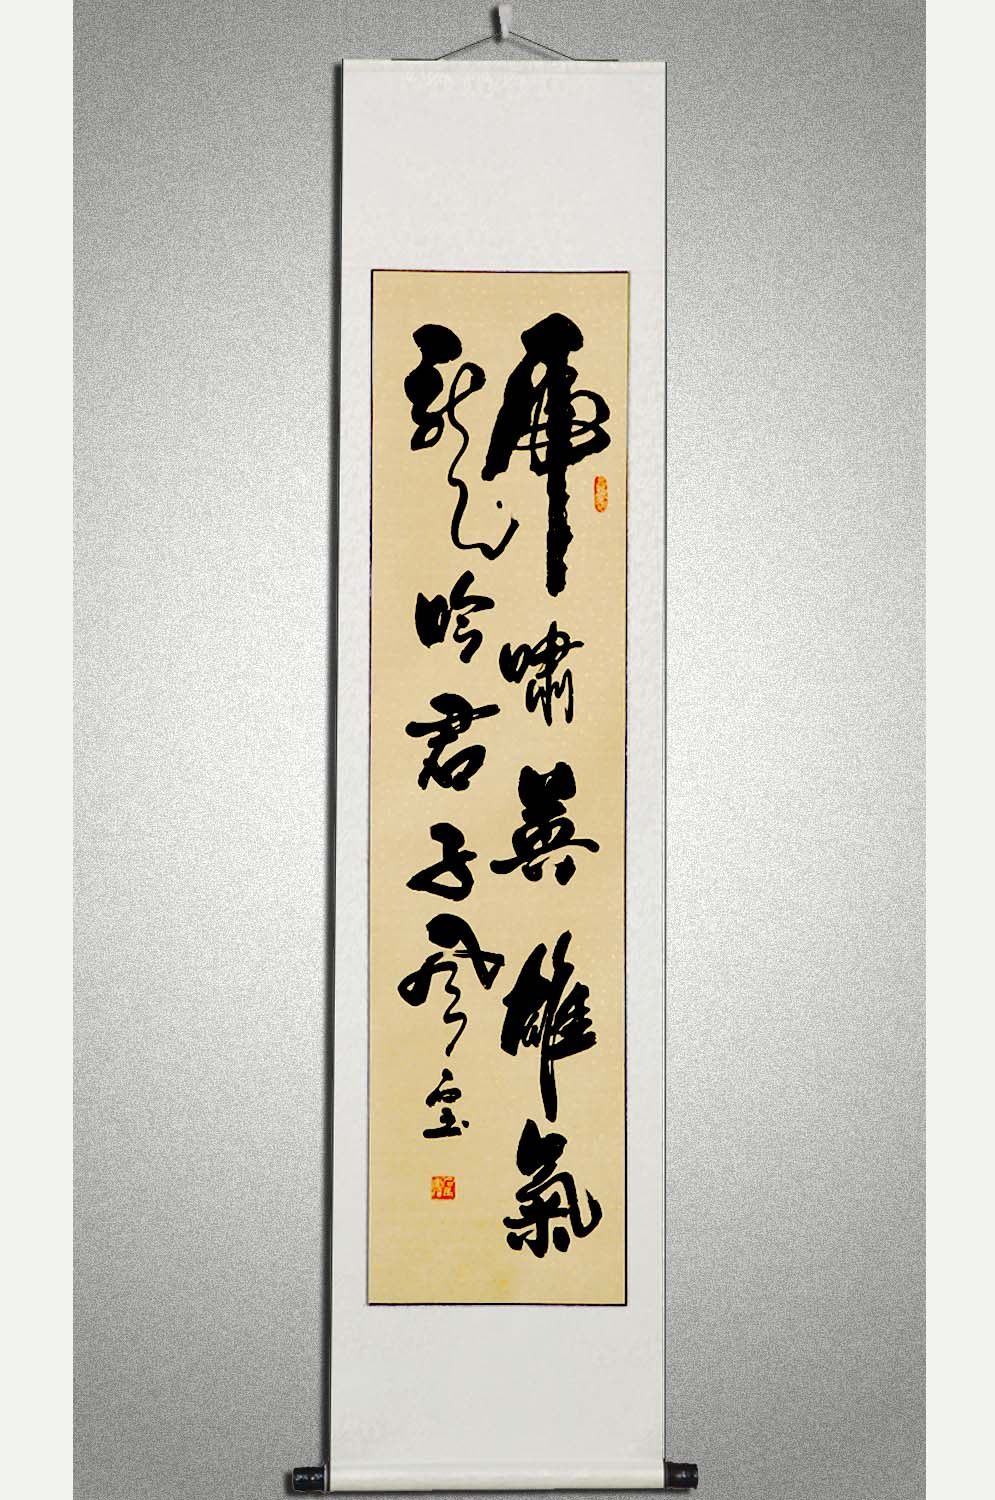 虎嘯英雄氣
龍吟君子风